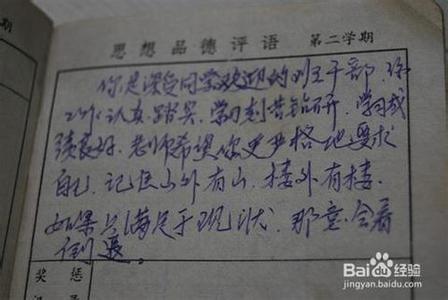 思想品德评语 第二学期
你是深受同学欢迎的班干部,你
工作认真踏实,学习刻苦钻研,学习成
绩良好。老师希望你更严格地要求
自己,记住山外有山,楼外有楼,
如果只满足于现状,那意会着
倒退。
奖惩
Baidu经验
jingyan.baidu.com